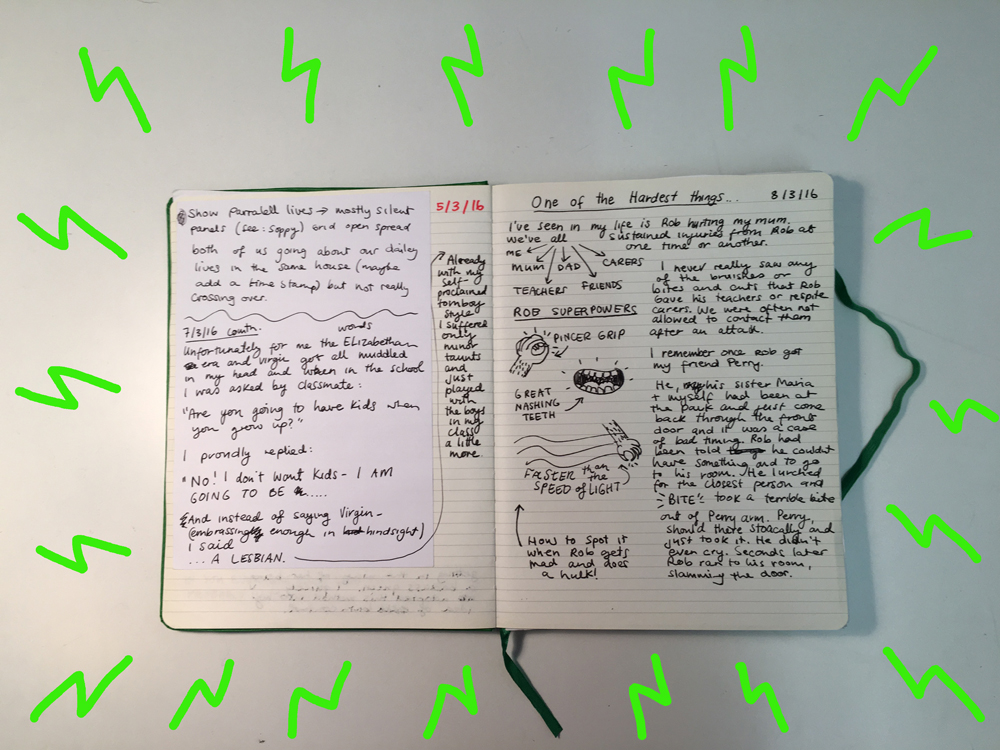 Show Parralell lives → mostly silent
panels (see: Soppy) end open spread
both of us going about our dailey
lives in the same house (maybe
add a time stamp) but not really
crossing over.
7/3/16 contn.
words
Unfortunately for me the Elizabethan
era and virgin got all muddled
in my head and when in the school
I was asked by classmate:
"Are you going to have kids when
you grow up?"
I proudly replied:
"No! I don't want kids - I AM
GOING TO BE .....
And instead of saying Virgin -
(embrassingly enough in hindsight)
I said
... A LESBIAN.
5/3/16
Already
with my
self-
proclaimed
tomboy
style
I suffered
only
minor
taunts
and
just
played
with
the boys
in my
class
a little
more.
One of the Hardest things... 8/3/16
I've seen in my life is Rob hurting my mum.
we've all sustained injuries from Rob at
one time or another.
ME
MUM
DAD
CARERS
TEACHERS FRIENDS
ROB SUPERPOWERS
PINCER GRIP
GREAT
NASHING
TEETH
FASTER than
the SPEED OF LIGHT
HOW TO SPOT it
when Rob gets
mad and does
a hulk!
I never really saw any
of the bruishes or
bites and cuts that Rob
gave his teachers or respite
carers. We were often not
allowed to contact them
after an attack.
I remember once Rob got
my friend Perry.
He, his sister Maria
+ myself had been at
the park and just come
back through the front
door and it was a case
of bad timing. Rob had
been told he couldnt
have something and to go
to his room. He lurched
for the closest person and
"BITE" took a terrible bite
out of Perry arm. Perry
should there stoacally and
just took it. He didn't
even cry. Seconds later
Rob ran to his room,
slamming the door.